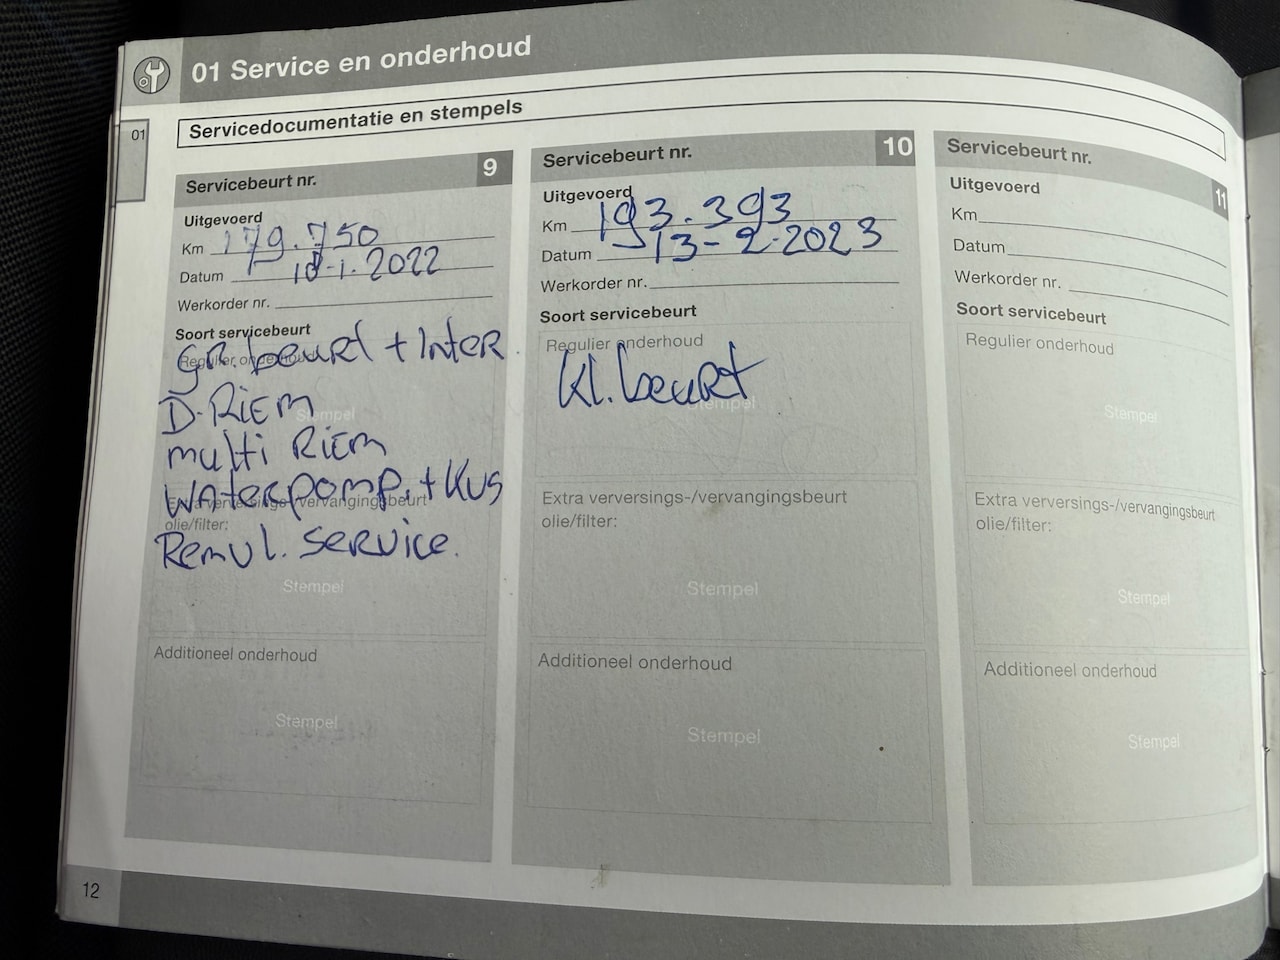 01 Service en onderhoud
01
Servicedocumentatie en stempels
Servicebeurt nr. 9
Uitgevoerd
Km 179.750
Datum 18-1.2022
Werkorder nr.
Soort servicebeurt
Regulier onderhoud
GR. beurt + Inter
D. Riem
Stempel
multi Riem
Waterpomp. + Kus
Extra verversings-/vervangingsbeurt
olie/filter:
Remvl. Service.
Stempel
Additioneel onderhoud
Stempel
Servicebeurt nr. 10
Uitgevoerd
Km 193.393
Datum 13-2-2023
Werkorder nr.
Soort servicebeurt
Regulier onderhoud
Kl. beurt
Stempel
Extra verversings-/vervangingsbeurt
olie/filter:
Stempel
Additioneel onderhoud
Stempel
Servicebeurt nr. 11
Uitgevoerd
Km
Datum
Werkorder nr.
Soort servicebeurt
Regulier onderhoud
Stempel
Extra verversings-/vervangingsbeurt
olie/filter:
Stempel
Additioneel onderhoud
Stempel
12